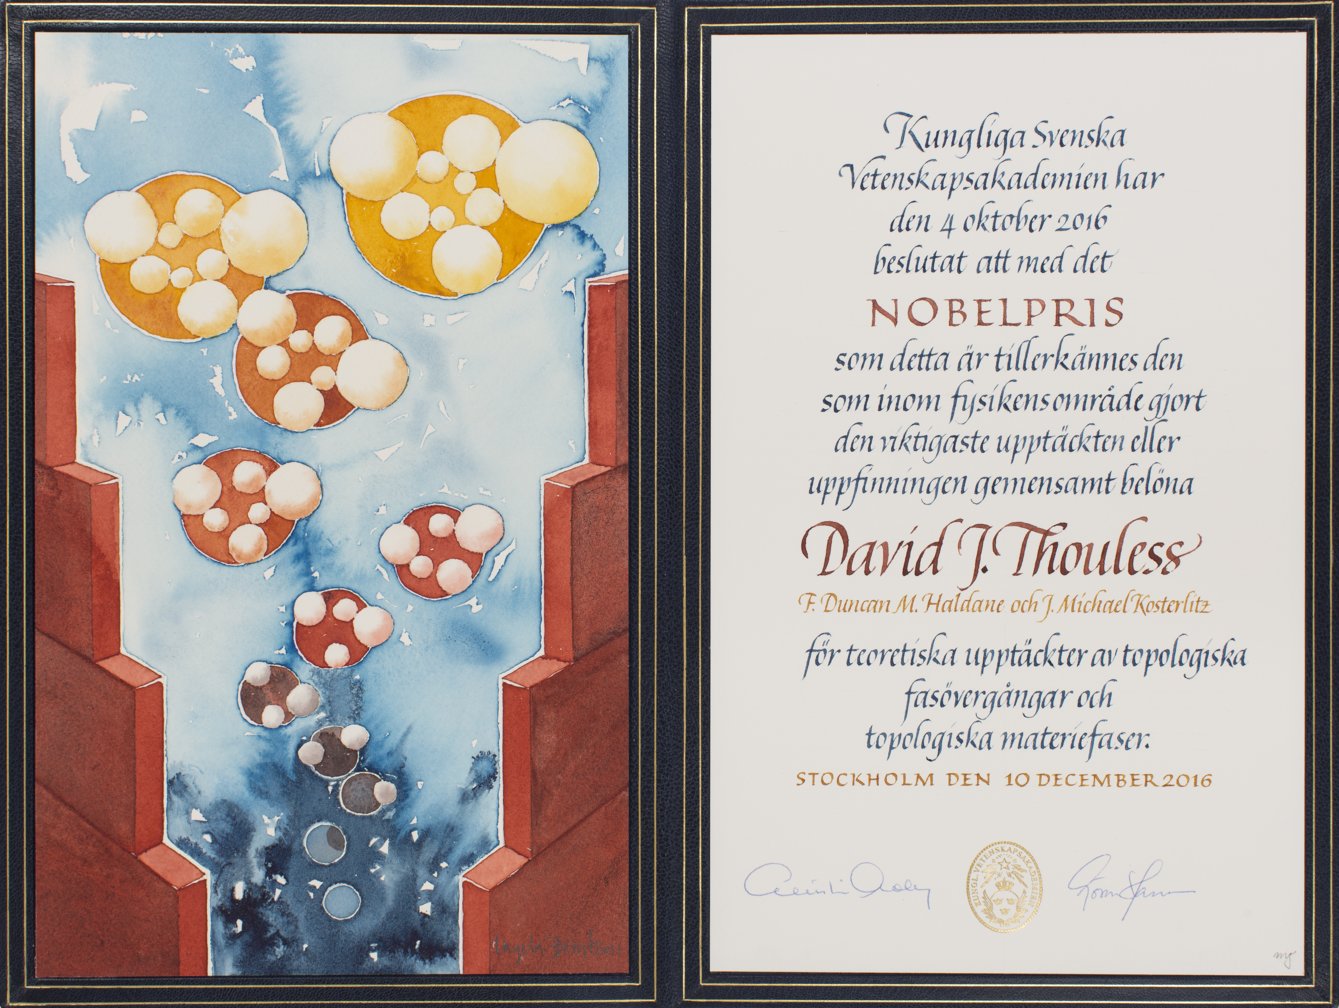 Kungliga Svenska
Vetenskapsakademien har
den 4 oktober 2016
beslutat att med det
NOBELPRIS
som detta år tillerkännes den
som inom fysikens område gjort
den viktigaste upptäckten eller
uppfinningen gemensamt belöna
David J. Thouless
F. Duncan M. Haldane och J. Michael Kosterlitz
för teoretiska upptäckter av topologiska
fasövergångar och
topologiska materiefaser.
STOCKHOLM DEN 10 DECEMBER 2016